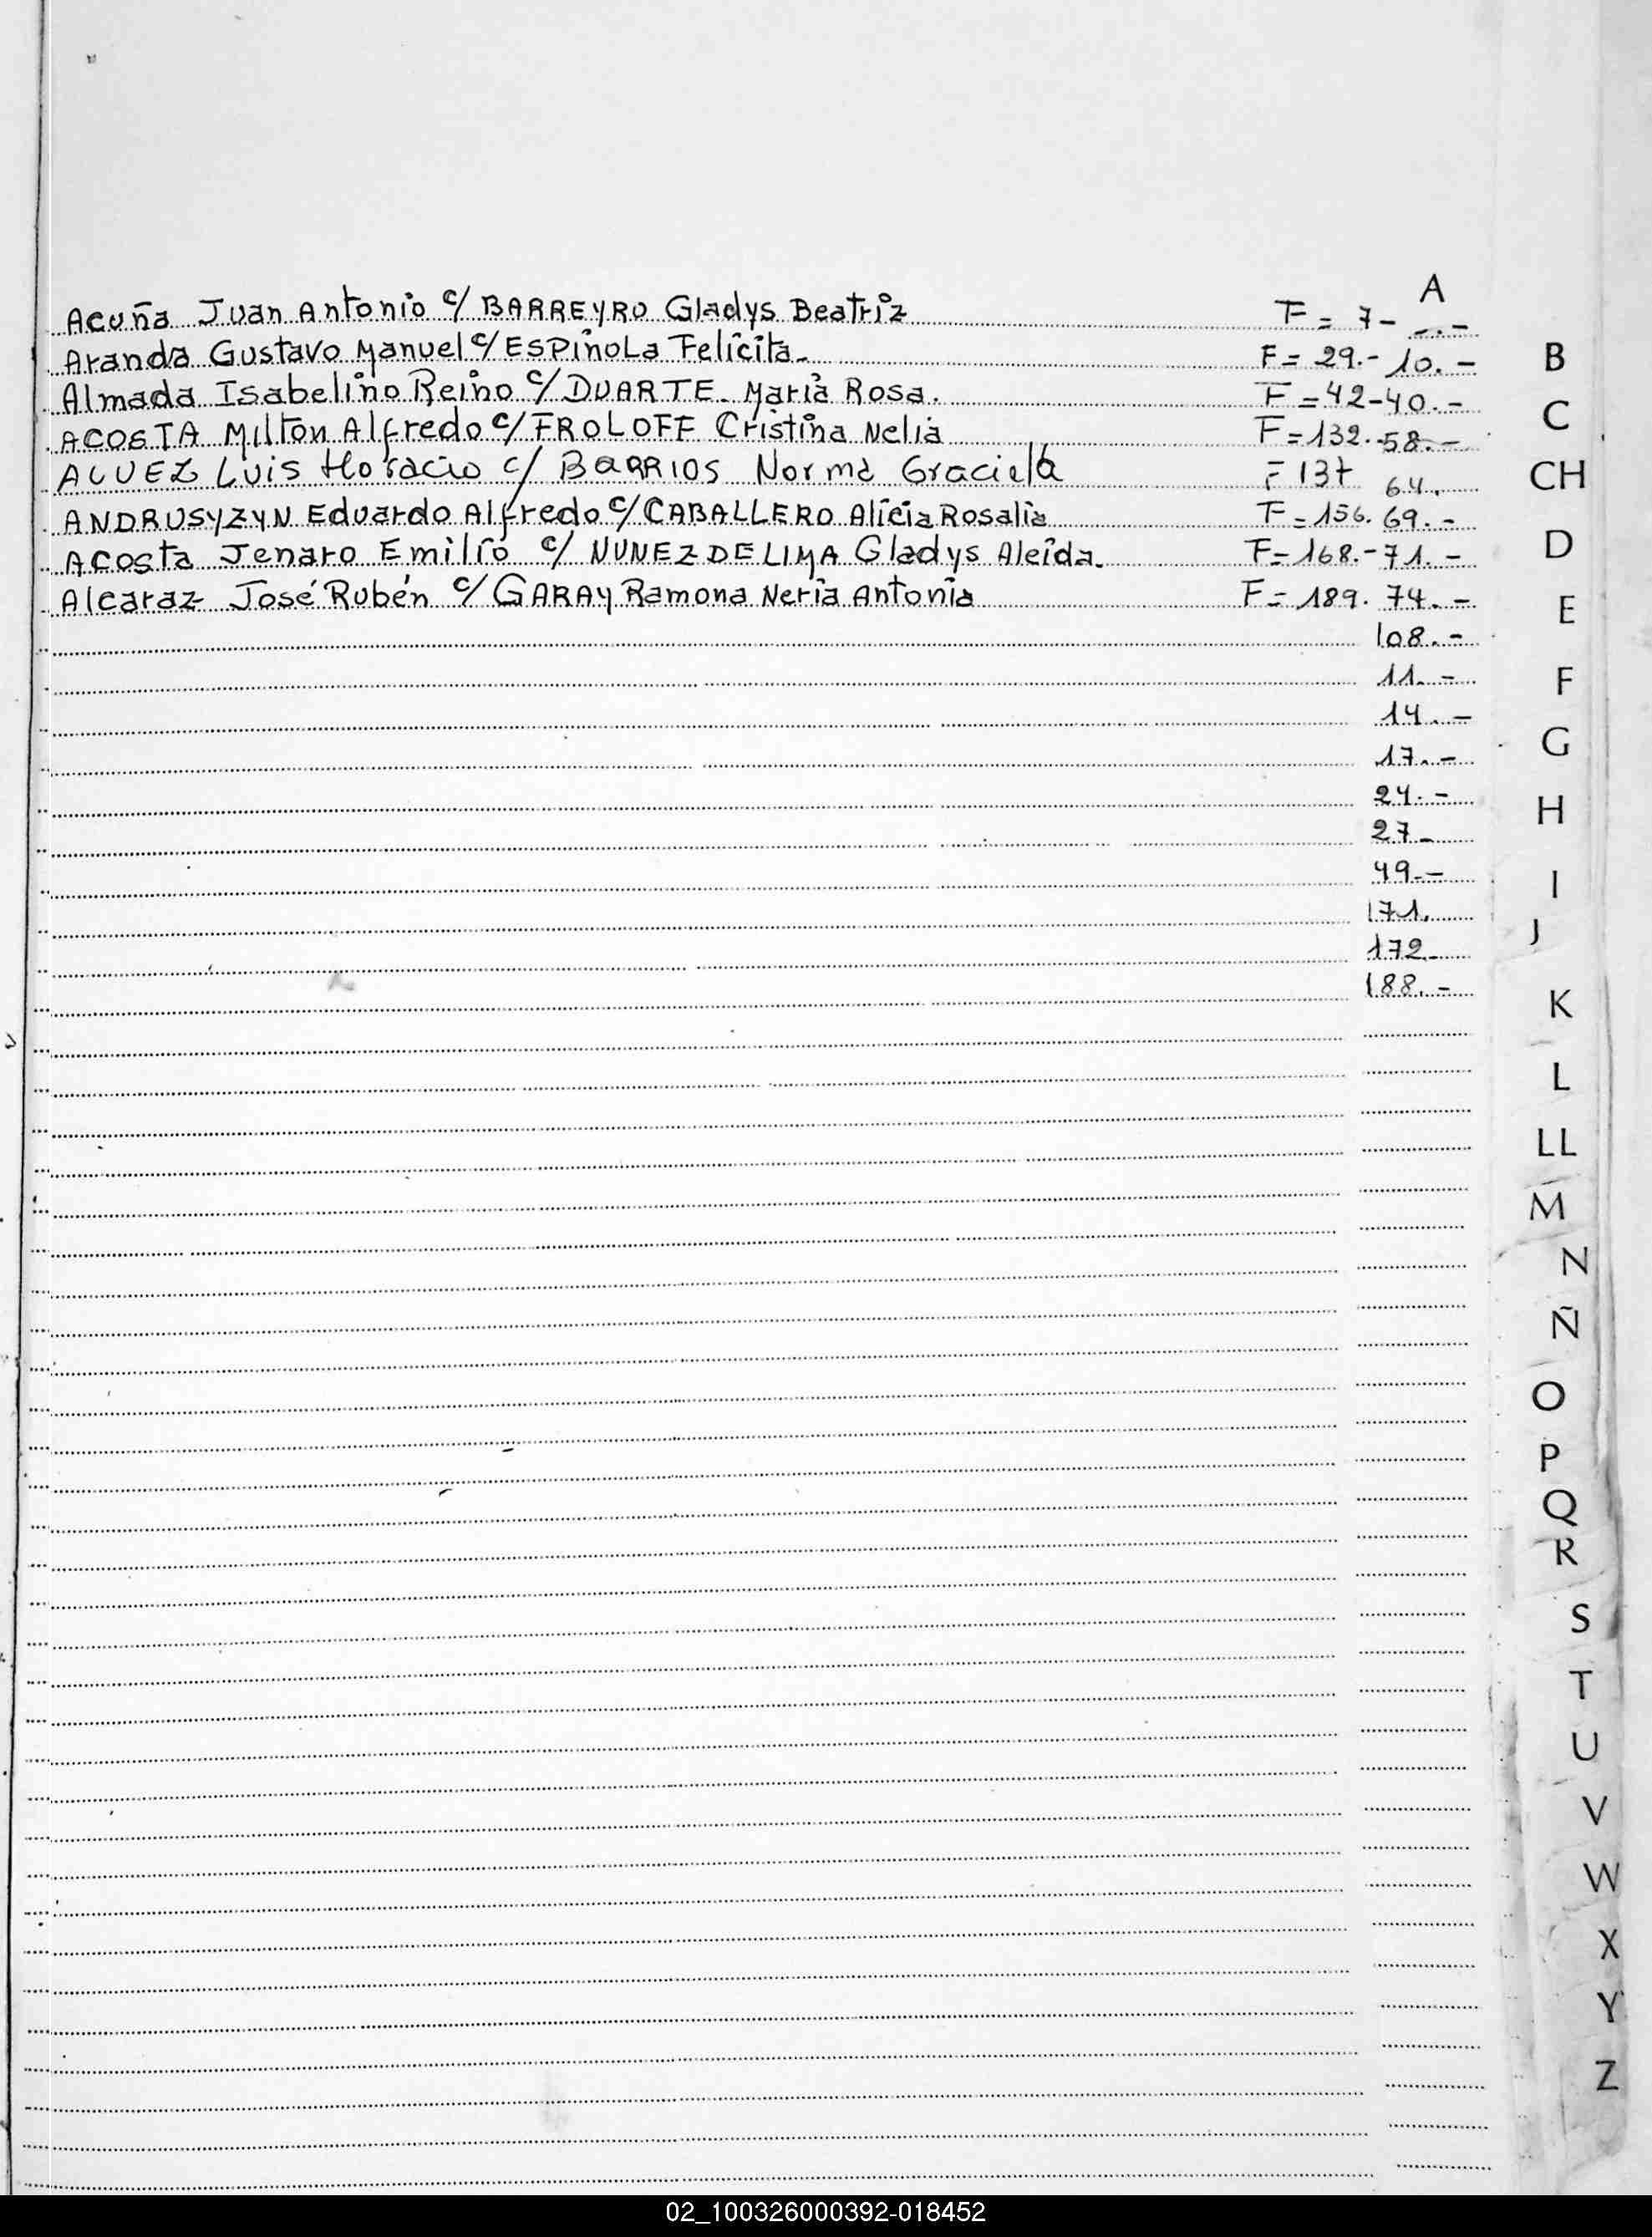 A
Acuña Juan Antonio c/ BARREYRO Gladys Beatriz F = 7- -.-
Aranda Gustavo Manuel c/ ESPINOLA Felicita- F = 29.- 10.-
Almada Isabelino Reino c/ DUARTE. Maria Rosa. F = 42-40.-
ACOSTA Milton Alfredo c/ FROLOFF Cristina Nelia F = 132.-58.-
ALVEZ Luis Horacio c/ BARRIOS Norma Graciela F 137 64.
ANDRUSYZYN Eduardo Alfredo c/ CABALLERO Alicia Rosalia F = 156. 69.-
Acosta Jenaro Emilio c/ NUNEZ DE LIMA Gladys Aleida. F = 168.-71.-
Alcaraz José Rubén c/ GARAY Ramona Neria Antonia F = 189. 74.-
108.-
11.-
14.-
17.-
24.-
27-
49.-
171.
172-
188.-
B
C
CH
D
E
F
G
H
I
J
K
L
LL
M
N
Ñ
O
P
Q
R
S
T
U
V
W
X
Y
Z
02_100326000392-018452